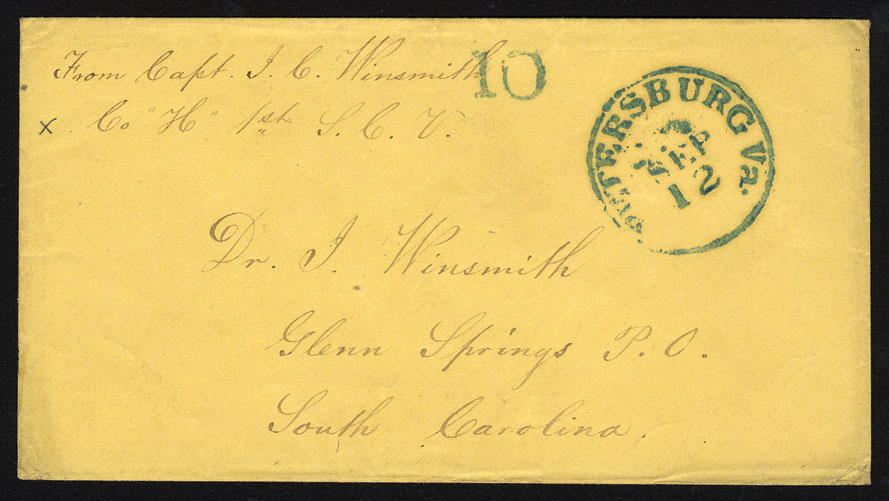 From Capt. J. C. Winsmith
10
x Co "H" 1st S. C. V.
PETERSBURG Va.
SEP
12
Dr. J. Winsmith
Glenn Springs P. O.
South Carolina.